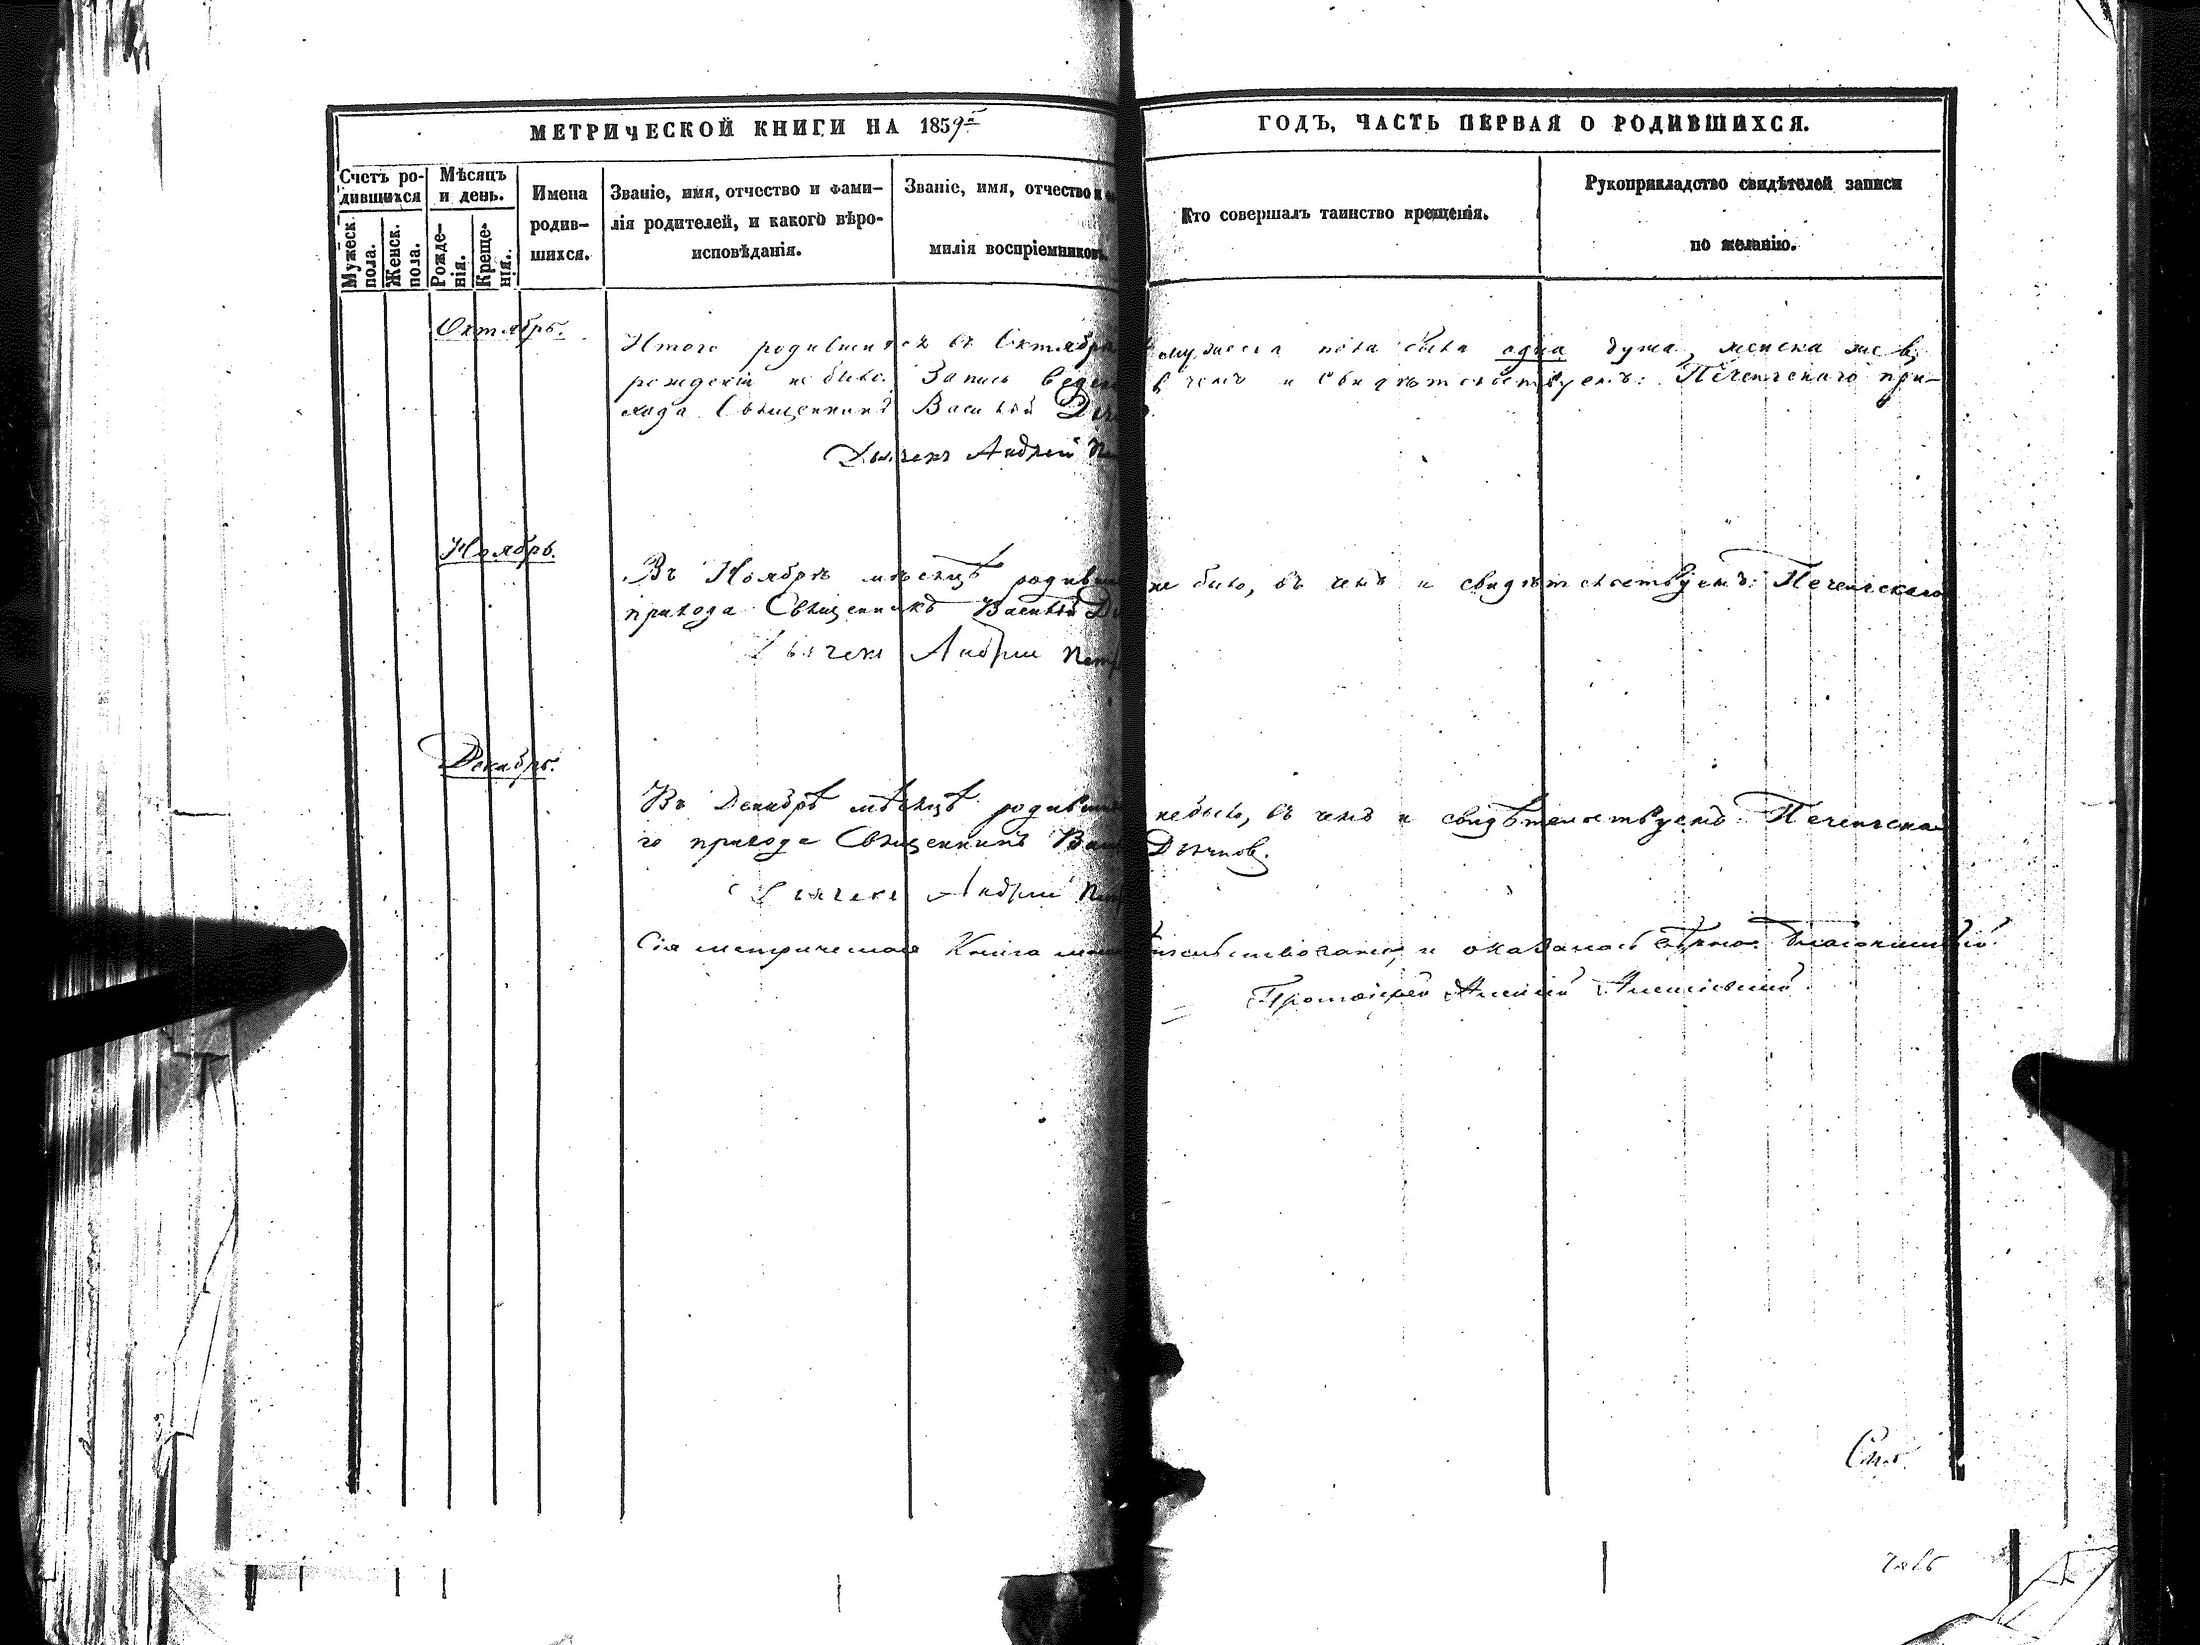 МЕТРИЧЕСКОЙ КНИГИ НА 1859й ГОДЪ, ЧАСТЬ ПЕРВАЯ О РОДИВШИХСЯ.
Счетъ ро-
дившихся
Мужеск.
пола.
Женск.
пола.
Мѣсяцъ
и день.
Рожде-
нія.
Креще-
нія.
Имена
родив-
шихся.
Званіе, имя, отчество и фами-
лія родителей, и какого вѣро-
исповѣданія.
Званіе, имя, отчество и
милія воспріемниковъ.
Кто совершалъ таинство крещенія.
Рукоприкладство свидѣтелей записи
по желанію.
Октябрь.
Итого родившихся въ Октябрѣ мужеска пола была одна душа, женска же
рожденій не было. Запись в чемъ и свидѣтельствуемъ: Печенгскаго при-
хода Священникъ Василій
Дьячекъ Андрей
Ноябрь.
Въ Ноябрѣ мѣсяцѣ родивши не было, въ чемъ и свидѣтельствуемъ: Печенгскаго
прихода Священникъ Василій
Дьячекъ Андрей Петр
Декабрь.
Въ Декабрѣ мѣсяцѣ родивши небыло, въ чемъ и свидѣтельствуемъ: Печенгска
го прихода Священникъ Васи Дьячков.
Дьячекъ Андрей
Сія метрическая Книга свидѣтельствована и оказалась вѣрною. Благочинный
Протоіерей Алексій